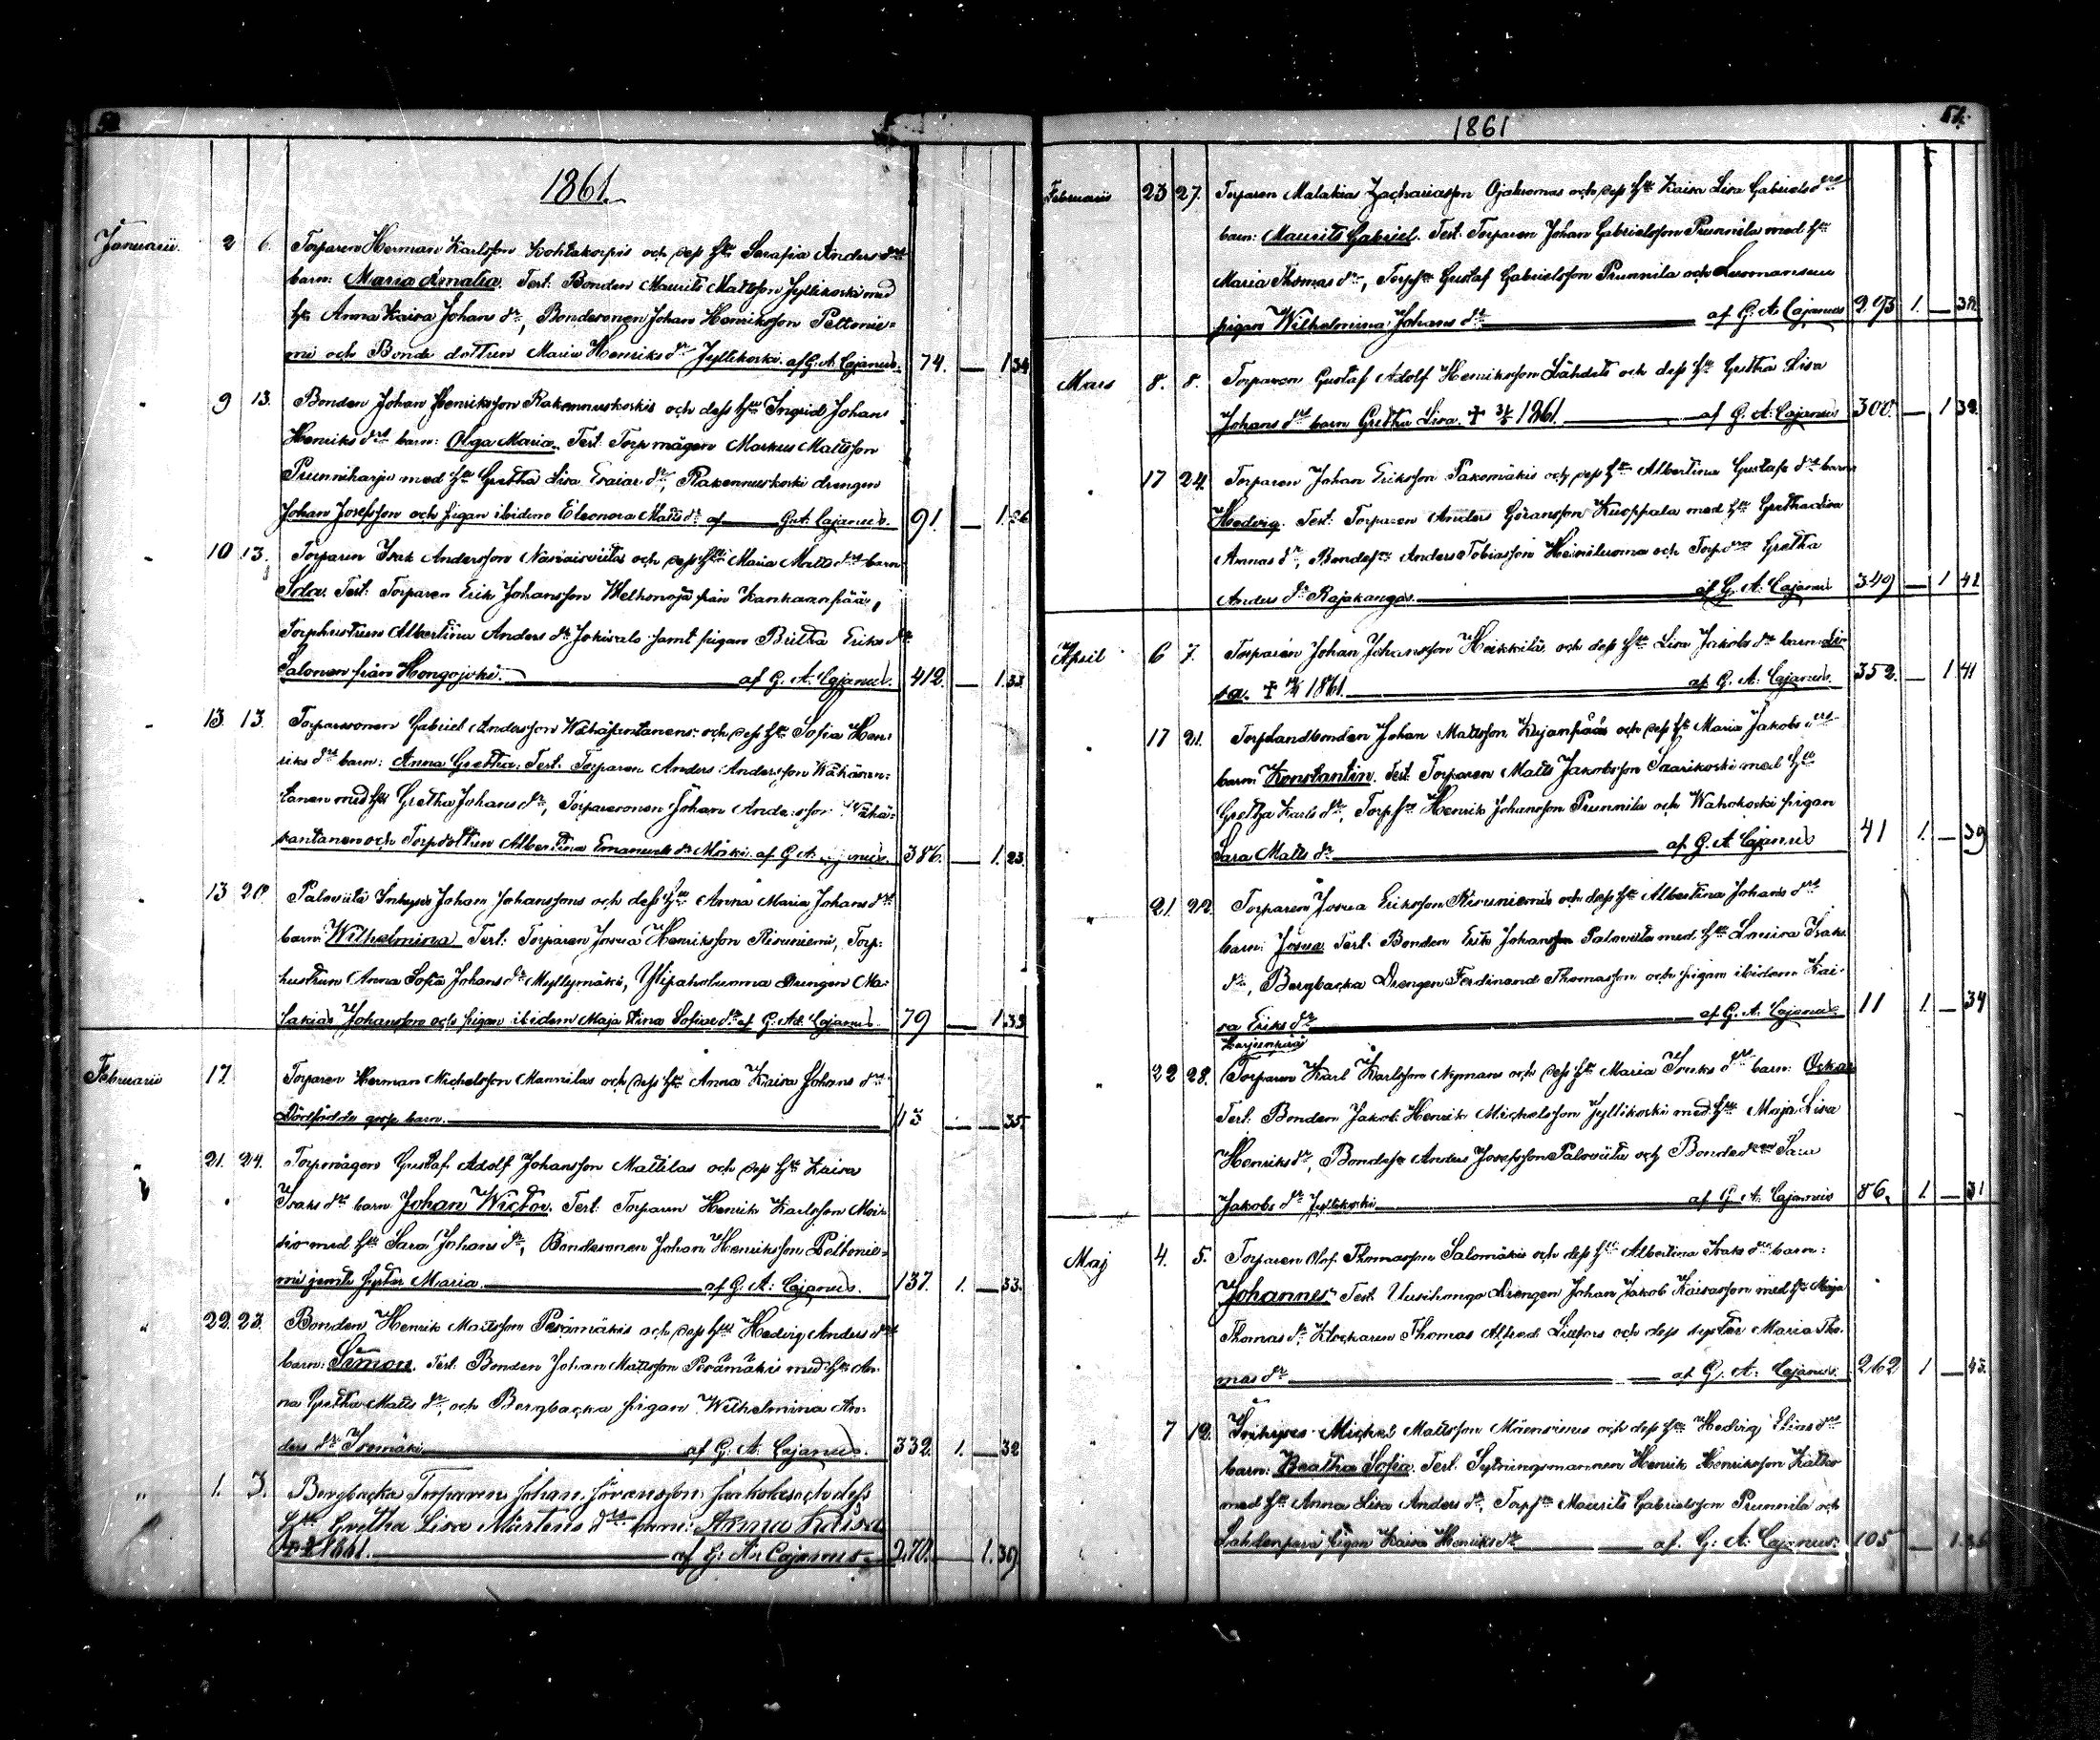 50
1861.
Januarii. 2 6. Torparen Herman Karlsson Kohtakorpis och dess Hu Serafia Anders drs
barn: Maria Amalia. Test: Bonden Maurits Mattsson Jyllikoski med
Hu Anna Kaisa Johans dr, Bondesonen Johan Henriksson Peltonie-
mi och Bonde dottren Maria Henriks dr Jyllikoski. af G. A. Cajanus. 74. — 1 34
" 9 13. Bonden Johan Henriksson Rakennuskoskis och dess Hu Ingrid Johans
Henriks drs barn: Olga Maria. Test: Torpmågen Markus Mattsson
Prunniharju med Hu Gretha Lisa Esaias dr, Rakennuskoski drengen
Johan Josefsson och pigan ibidem Eleonora Matts dr af G. A. Cajanus. 91. — 1. 26
" 10 13. Torparen Isak Andersson och dess Hu Maria Matts drs barn
Ida. Test: Torparen Erik Johansson från Kankaanpää,
Torphustrun Albertina Anders dr Jokisalo samt pigan Britha Eriks dr
Salonen från Hongojoki. af G. A. Cajanus. 412. — 1. 33
" 13 13. Torparesonen Gabriel Andersson Wähäsantanens och dess Hu Sofia Hen-
riks drs barn: Anna Gretha. Test: Torparen Anders Andersson Wähäsan-
tanen med Hu Gretha Johans dr, Torparesonen Johan Andersson Wähä-
santanen och Torpdottren Albertina Emanuels dr Mäki. af G. A. Cajanus. 386. — 1. 23
" 13 20 Paloviita Inhyses Johan Johanssons och dess Hu Anna Maria Johans drs
barn: Wilhelmina. Test: Torparen Josua Henriksson Risuniemi, Torp-
hustrun Anna Sofia Johans dr Myllymäki, Ylipaholuoma Drengen Ma-
lakias Johansson och pigan ibidem Maja Stina Sofias dr af G. A. Cajanus. 79 — 1 33
Februarii 17. Torparen Herman Michelsson Mannilas och dess Hu Anna Kaisa Johans drs
Dödfödde goss barn. 43 — — 35
" 21. 24. Torpmågen Gustaf Adolf Johansson Mattilas och dess Hu Kaisa
Isaks drs barn Johan Wictor. Test: Torparen Henrik Karlsson Moi-
sio med Hu Sara Johans dr, Bondesonen Johan Henriksson Peltonie-
mi jemte syster Maria. af G. A. Cajanus. 137. 1. — 33.
" 22. 23. Bonden Henrik Mattsson Perämäkis och dess Hu Hedvig Anders drs
barn: Simon. Test: Bonden Johan Mattsson Perämäki med Hu An-
na Gretha Matts dr, och Bergbacka pigan Wilhelmina An-
ders dr Isomäki af G. A. Cajanus. 332. 1. — 32
" 1. 3. Bergbacka Torparen Johan Göransson Jaakolas och dess
Hu Gretha Lisa Mårtens drs barn: Anna Kaisa
1861. af G. A. Cajanus 270. — 1. 39
51.
1861
Februarii 23 27. Torparen Malakias Zachariasson Ojaluomas och dess Hu Kaisa Lisa Gabriels drs
barn: Maurits Gabriel. Test: Torparen Johan Gabrielsson Prunnila med Hu
Maria Thomas dr, Torps Gustaf Gabrielsson Prunnila och
pigan Wilhelmina Johans dr af G. A. Cajanus 293 1. — 38.
Mars 8. 8. Torparen Gustaf Adolf Henriksson Lähdets och dess Hu Gretha Lisa
Johans drs barn Gretha Lisa. + 1861. af G. A. Cajanus 300. — 1 39.
" 17 24. Torparen Johan Eriksson Paksmäkis och dess Hu Albertina Gustafs drs barn
Hedvig. Test: Torparen Anders Göransson Kuoppala med Hu Gretha Lisa
Annas dr, Bondes Anders Tobiasson Heiniluoma och Torpdr Gretha
Anders dr Rajakangas. af G. A. Cajanus 349 — 1 42
April 6 7. Torparen Johan Johansson Heikkilä och dess Hu Lisa Jakobs drs barn: Li-
sa. + 1861. af G. A. Cajanus. 352. — 1 41
" 17 21. Torplandbonden Johan Mattsson Kujanpääs och dess Hu Maria Jakobs drs
barn: Konstantin. Test: Torparen Matts Jakobsson Saarikoski med Hu
Gretha Karls dr, Torps Henrik Johansson Prunnila och Wahokoski pigan
Sara Matts dr af G. A. Cajanus 41 1. — 39
" 21. 22. Torparen Josua Eriksson Risuniemis och dess Hu Albertina Johans drs
barn: Josua. Test: Bonden Erik Johansson Paloviita med Hu Lovisa Isaks
dr, Bergbacka Drengen Ferdinand Thomasson och pigan ibidem Kai-
sa Eriks dr af G. A. Cajanus 11 1. — 34
Harjunpää
" 22 28. Torparen Karl Karlsson Nymans och dess Hu Maria Isaks drs barn: Oskar
Test: Bonden Jakob Henrik Michelsson Jyllikoski med Hu Maja Lisa
Henriks dr, Bondes Anders Josefsson Paloviita och Bondedr Sara
Jakobs dr Jyllikoski af G. A. Cajanus 86. 1. — 31
Maj 4. 5. Torparen Olof Thomasson Salomäkis och dess Hu Albertina Isaks drs barn:
Johannes. Test: Uusihonga Drengen Johan Jakob Kaisasson med Hu Maja
Thomas dr, Klockaren Thomas Alfred Litfors och dess syster Maria Tho-
mas dr af G. A. Cajanus. 262 1 — 43.
" 7 12. Inhyses Michel Mattsson Mäensivus och dess Hu Hedvig Elias drs
barn: Beatha Sofia. Test: Sytningsmannen Henrik Henriksson Katko
med Hu Anna Lisa Anders dr, Torps Maurits Gabrielsson Prunnila och
Lahdenperä pigan Kaisa Henriks dr af. G. A. Cajanus. 105 — 1. 36